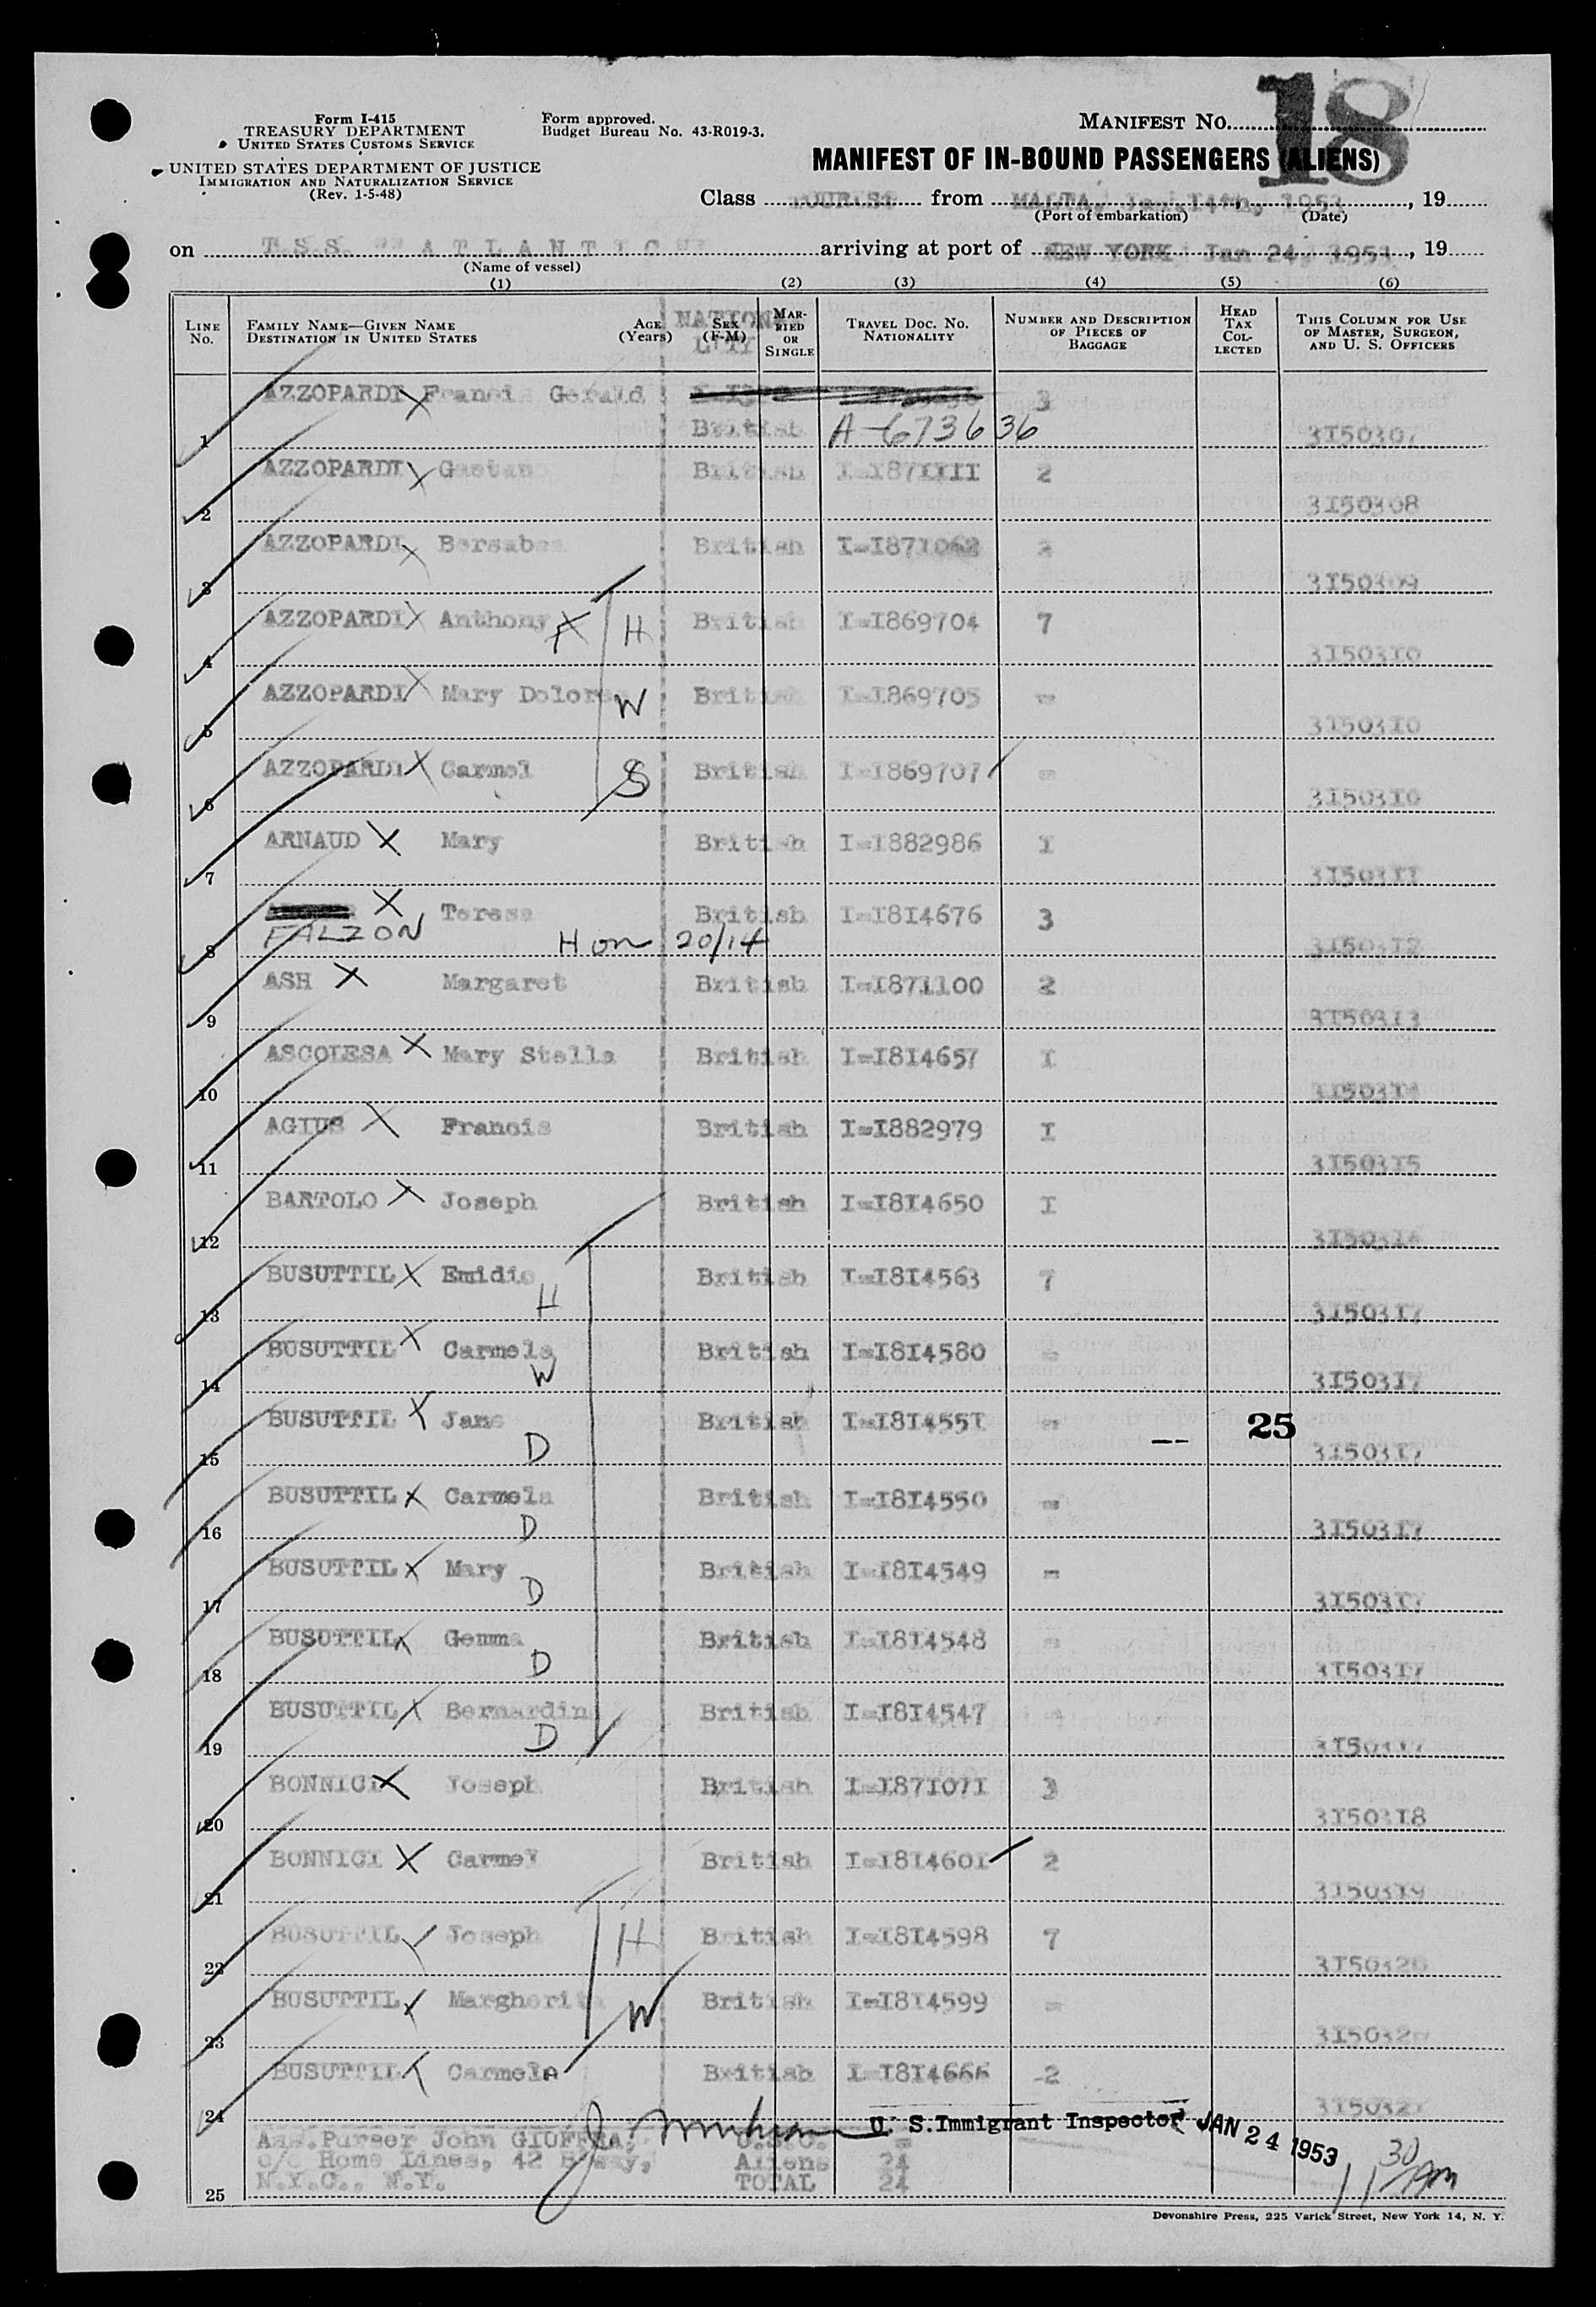 18
Form I-415
TREASURY DEPARTMENT
UNITED STATES CUSTOMS SERVICE
UNITED STATES DEPARTMENT OF JUSTICE
IMMIGRATION AND NATURALIZATION SERVICE
(Rev. 1-5-48)
Form approved.
Budget Bureau No. 43-R019-3.
MANIFEST NO.
MANIFEST OF IN-BOUND PASSENGERS (ALIENS)
Class TOURIST from MALTA, Jan.14th, 1953, 19
(Port of embarkation) (Date)
on T.S.S. "ATLANTIC" arriving at port of NEW YORK Jan 24, 1953, 19
(Name of vessel)
(1) (2) (3) (4) (5) (6)
LINE NO. FAMILY NAME—GIVEN NAME DESTINATION IN UNITED STATES AGE (Years) SEX (F-M) MARRIED OR SINGLE TRAVEL DOC. NO. NATIONALITY NUMBER AND DESCRIPTION OF PIECES OF BAGGAGE HEAD TAX COLLECTED THIS COLUMN FOR USE OF MASTER, SURGEON, AND U. S. OFFICERS
AZZOPARDI X Francis Gerald 3
1 British A-6736 36 3I50307
AZZOPARDI X Gaetan British I-I87IIII 2
2 3I50308
AZZOPARDI X Bersabea British I-I871062 2
3 3I50309
AZZOPARDI X Anthony X H British I-I869704 7
4 3I503I0
AZZOPARDI X Mary Dolores W British I-I869705 -
5 3I503I0
AZZOPARDI X Carmel S British I-I869707 -
6 3I503I0
ARNAUD X Mary British I-I882986 I
7 3I503II
X Teresa British I-I8I4676 3
8 FALZON H on 20/14 3I503I2
ASH X Margaret British I-I871100 2
9 3I503I3
ASCOLESA X Mary Stella British I-I8I4657 I
10 3I503I4
AGIUS X Francis British I-I882979 I
11 3I503I5
BARTOLO X Joseph British I-I8I4650 I
12 3I503I6
BUSUTTIL X Emidio H British I-I8I4563 7
13 3I503I7
BUSUTTIL X Carmela W British I-I8I4580 -
14 3I503I7
BUSUTTIL X Jane D British I-I8I455I - -- 25
15 3I503I7
BUSUTTIL X Carmela D British I-I8I4550 -
16 3I503I7
BUSUTTIL X Mary D British I-I8I4549 -
17 3I503I7
BUSUTTIL X Gemma D British I-I8I4548 -
18 3I503I7
BUSUTTIL X Bernardin D British I-I8I4547
19 3I503I7
BONNICI X Joseph British I-I87I07I 3
20 3I503I8
BONNICI X Carmel British I-I8I460I 2
21 3I503I9
BUSUTTIL X Joseph H British I-I8I4598 7
22 3I50320
BUSUTTIL X Margherita W British I-I8I4599 -
23 3I50320
BUSUTTIL X Carmela British I-I8I4666 2
24 3I5032I
U. S. Immigrant Inspector JAN 24 1953
Ass.Purser John GIUFFRA, U.S.C. -
c/o Home Lines, 42 B'way, Aliens 24
25 N.Y.C., N.Y. TOTAL 24
11 30 am
Devonshire Press, 225 Varick Street, New York 14, N. Y.